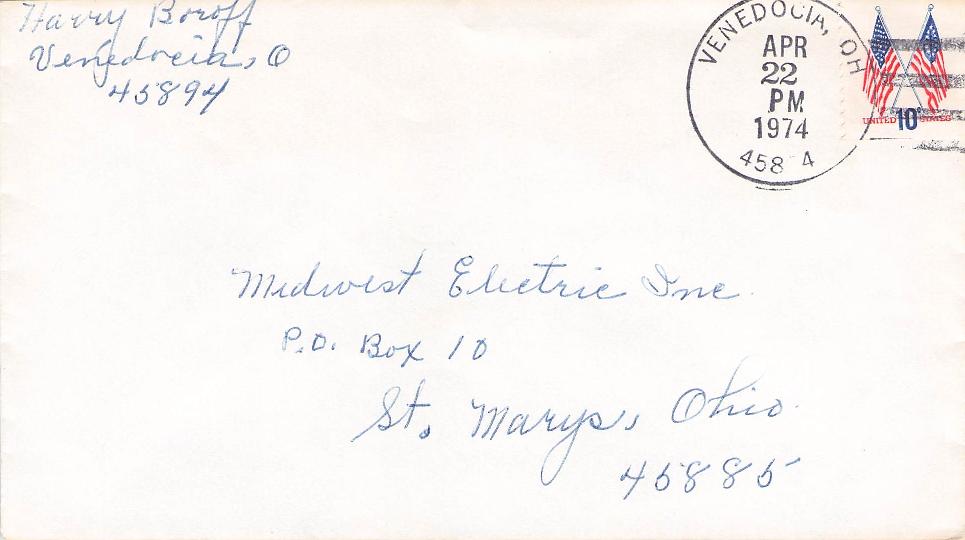 Harry Boroff
Venedocia, O
45894
VENEDOCIA, OH
APR
22
PM
1974
458 4
UNITED 10c STATES
Midwest Electric Inc.
P.O. Box 10
St. Marys, Ohio.
45885